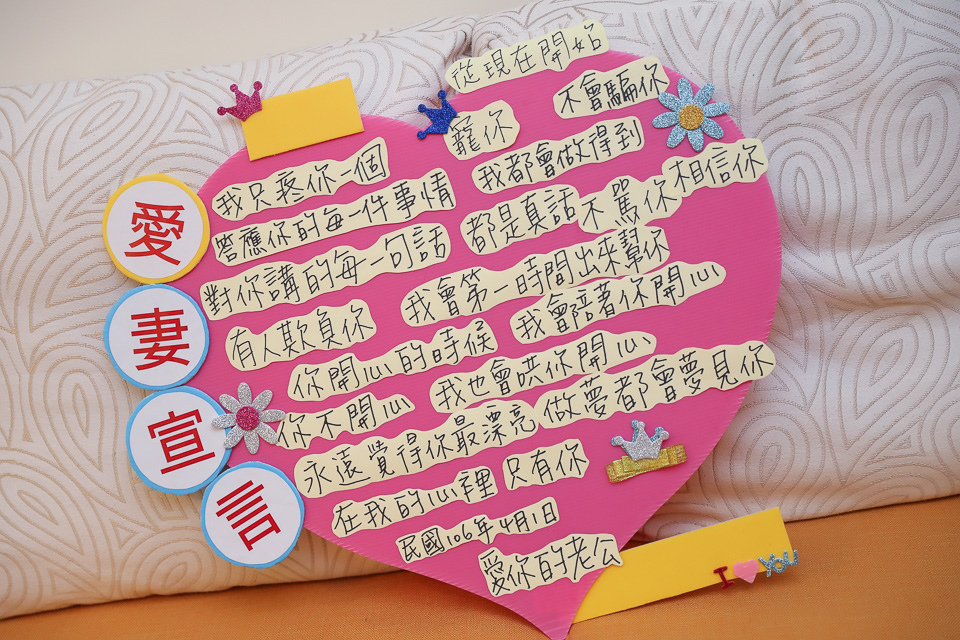 愛妻宣言
從現在開始
我只疼你一個
寵你
不會騙你
答應你的每一件事情
我都會做得到
對你講的每一句話
都是真話
不罵你
相信你
有人欺負你
我會第一時間出來幫你
你開心的時候
我會陪著你開心
你不開心
我也會哄你開心
永遠覺得你最漂亮
做夢都會夢見你
在我的心裡
只有你
民國106年4月1日
愛你的老公
I YOU